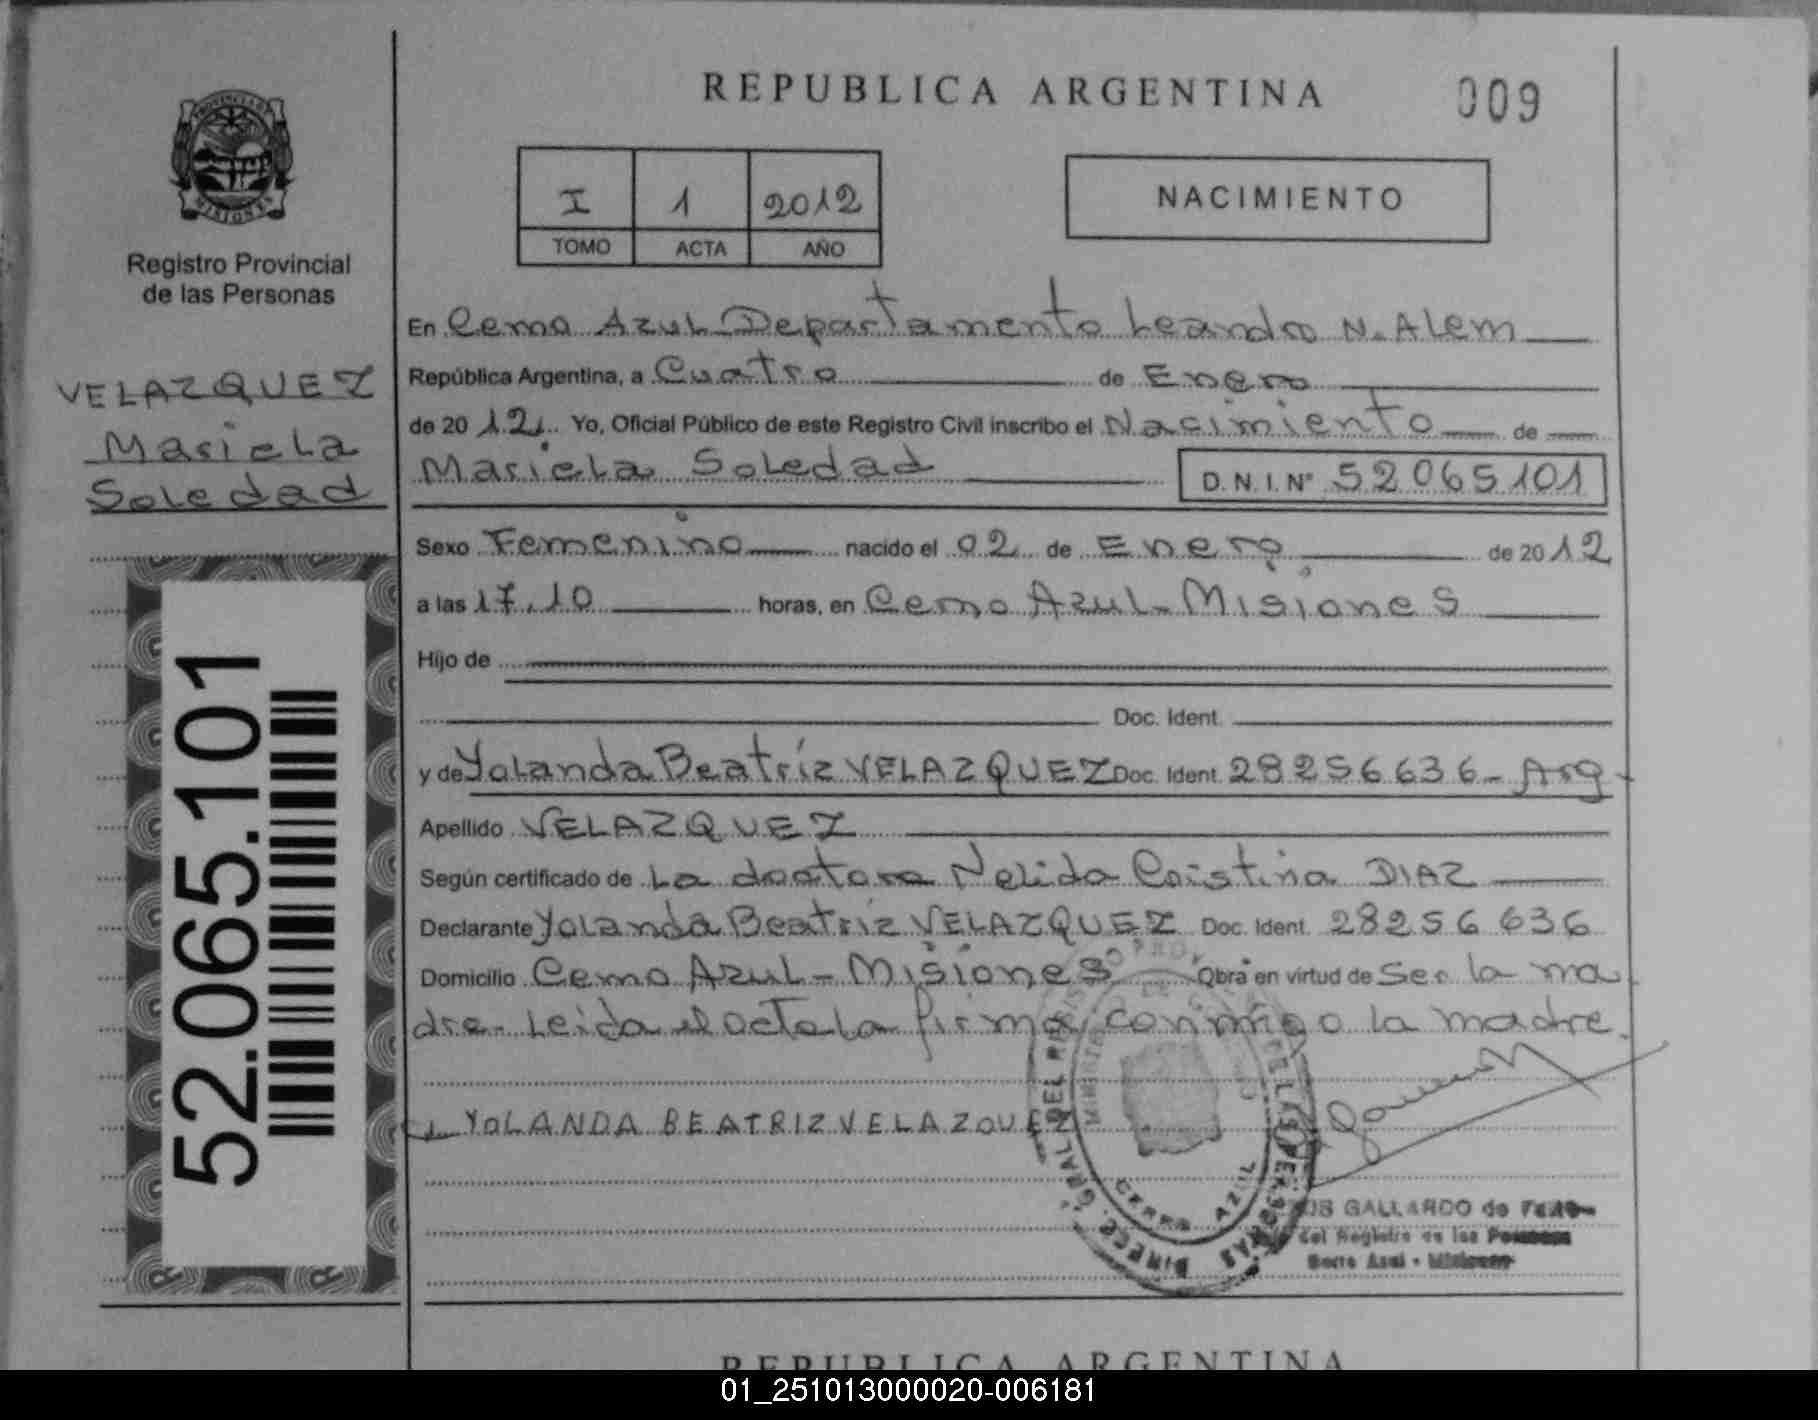 REPUBLICA ARGENTINA
009
PROVINCIA DE
MISIONES
Registro Provincial
de las Personas
I 1 2012
TOMO ACTA AÑO
NACIMIENTO
VELAZQUEZ
Mariela
Soledad
52.065.101
En Cerro Azul Departamento Leandro N. Alem
República Argentina, a Cuatro de Enero
de 2012. Yo, Oficial Público de este Registro Civil inscribo el Nacimiento de
Mariela Soledad D.N.I.Nº 52065101
Sexo Femenino nacido el 02 de Enero de 2012
a las 17,10 horas, en Cerro Azul - Misiones
Hijo de
Doc. Ident.
y de Yolanda Beatríz VELAZQUEZ Doc. Ident. 28256636 - Arg
Apellido VELAZQUEZ
Según certificado de La doctora Nelida Cristina DIAZ
Declarante Yolanda Beatriz VELAZQUEZ Doc. Ident. 28256636
Domicilio Cerro Azul - Misiones Obra en virtud de Ser la ma
dre. Leida el acta la firma conmigo la madre.
YOLANDA BEATRIZ VELAZQUEZ
CERRO AZUL
GALLARDO de
del Registro de las Personas
Cerro Azul - Misiones
REPUBLICA ARGENTINA
01_251013000020-006181